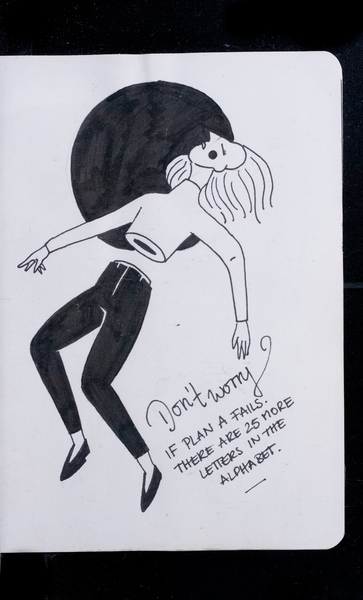 Don't worry
IF PLAN A FAILS:
THERE ARE 25 MORE
LETTERS IN THE
ALPHABET.